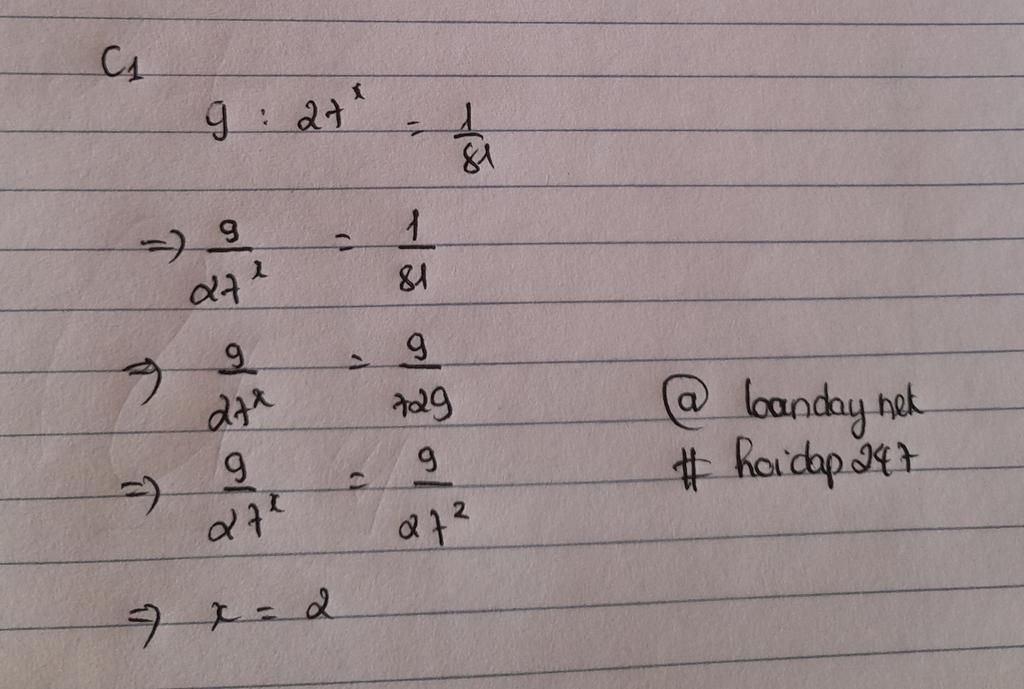 C1
9 : 27^x = 1/81
=> 9/27^x = 1/81
=> 9/27^x = 9/729
=> 9/27^x = 9/27^2
=> x = 2
@ loanday nek
# hoidap247